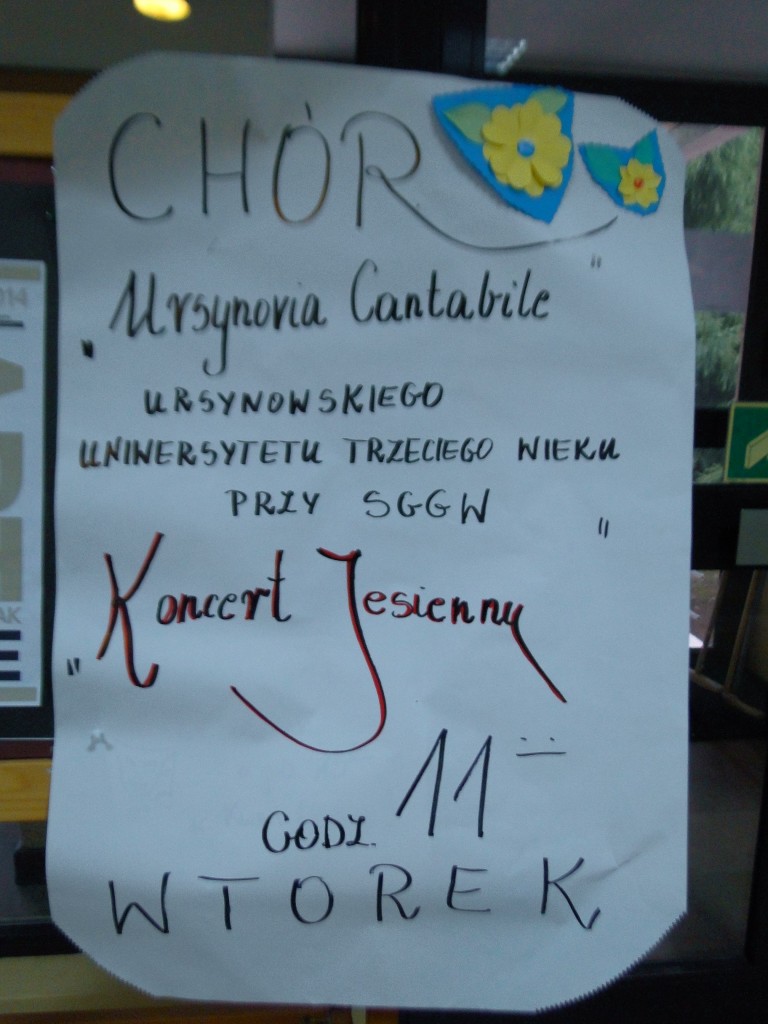 CHÓR
„Ursynovia Cantabile"
URSYNOWSKIEGO
UNIWERSYTETU TRZECIEGO WIEKU
PRZY SGGW
„Koncert Jesienny"
GODZ. 11
WTOREK